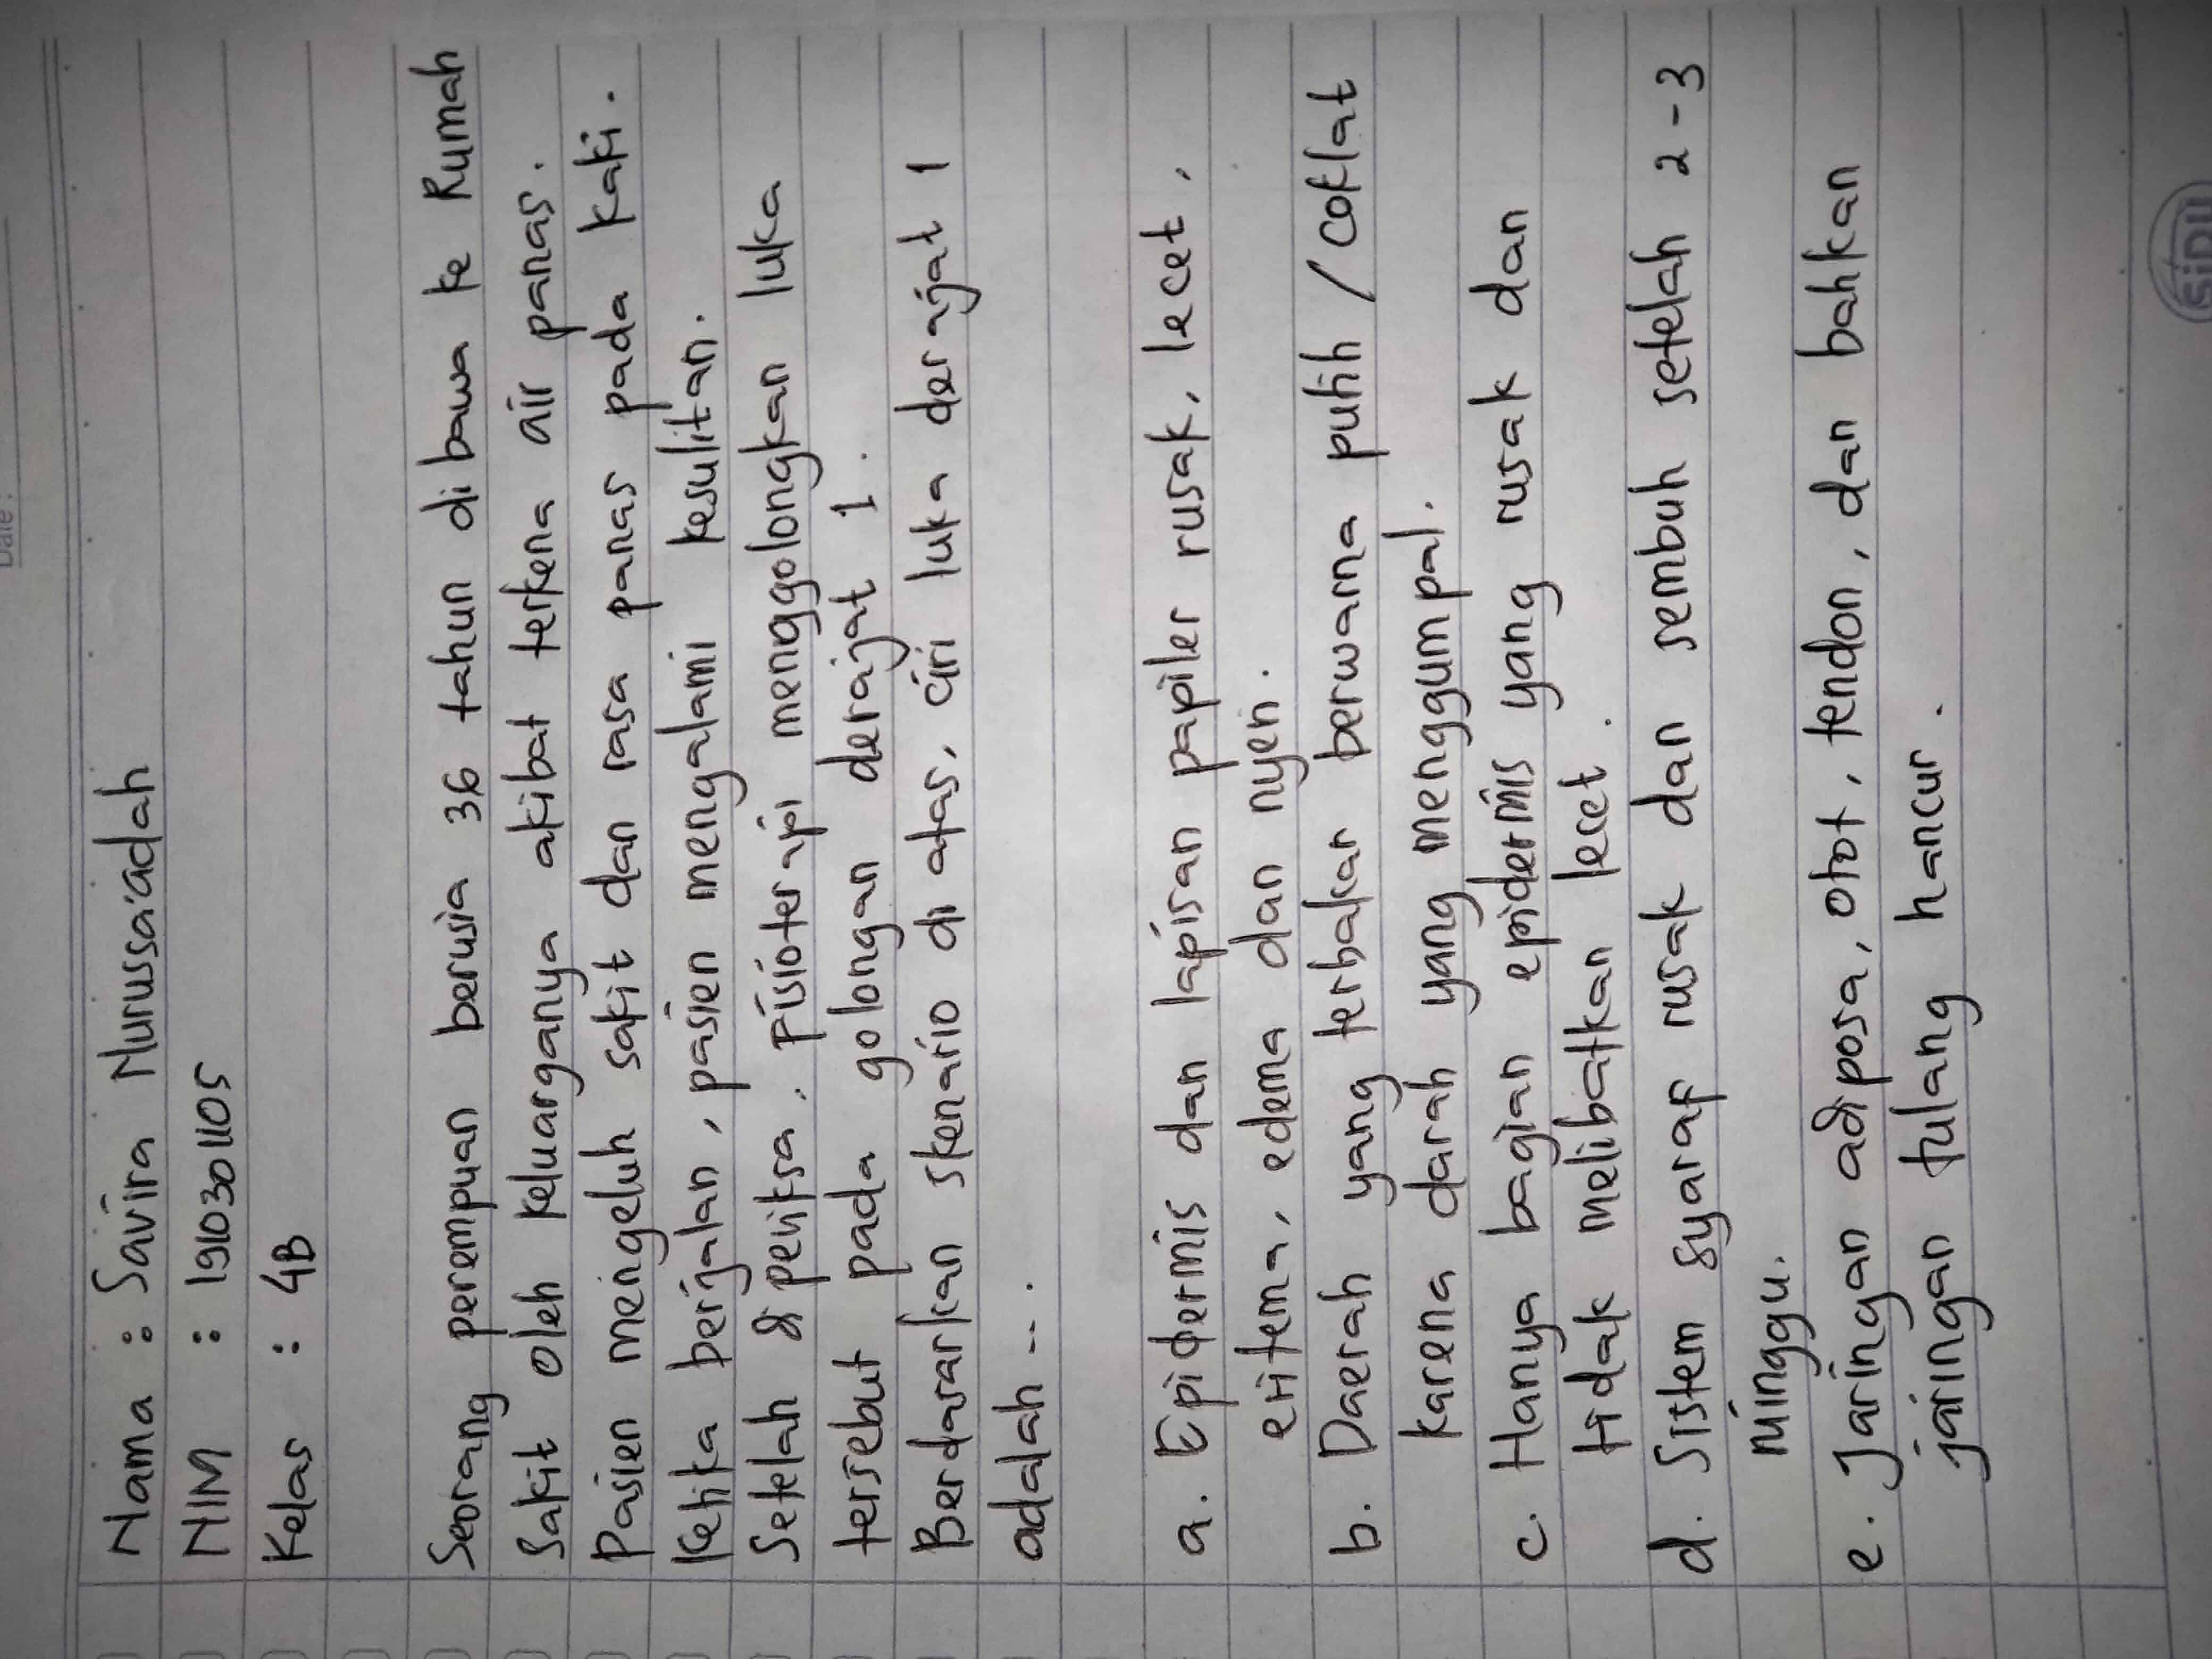 Date :
Nama : Savira Nurussa'adah
NIM : 1910301105
Kelas : 4B
Seorang perempuan berusia 36 tahun di bawa ke Rumah
Sakit oleh keluarganya akibat terkena air panas.
Pasien mengeluh sakit dan rasa panas pada kaki.
Ketika berjalan, pasien mengalami kesulitan.
Setelah diperiksa, fisioterapi menggolongkan luka
tersebut pada golongan derajat 1.
Berdasarkan skenario di atas, ciri luka derajat 1
adalah ...
a. Epidermis dan lapisan papiler rusak, lecet,
eritema, edema dan nyeri.
b. Daerah yang terbakar berwarna putih / coklat
karena darah yang menggumpal.
c. Hanya bagian epidermis yang rusak dan
tidak melibatkan lecet.
d. Sistem syaraf rusak dan sembuh setelah 2-3
minggu.
e. Jaringan adiposa, otot, tendon, dan bahkan
jaringan tulang hancur.
SiDU